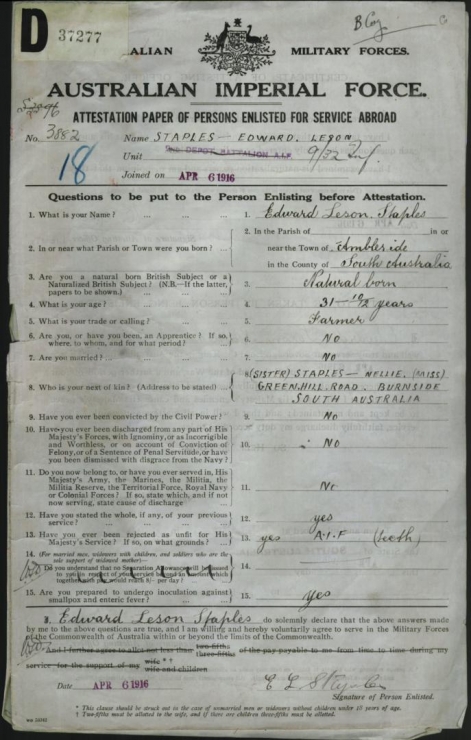 D 37277
ALIAN MILITARY FORCES.
AUSTRALIAN IMPERIAL FORCE.
ATTESTATION PAPER OF PERSONS ENLISTED FOR SERVICE ABROAD
No. 3882 Name STAPLES — EDWARD. LESON
18 Unit 2ND DEPOT BATTALION A.I.F. 9/32 Inf.
Joined on APR 6 1916
Questions to be put to the Person Enlisting before Attestation.
1. What is your Name? ... ... ... 1. Edward Leson. Staples
2. In or near what Parish or Town were you born? ... 2. In the Parish of in or
near the Town of Ambleside
in the County of South Australia
3. Are you a natural born British Subject or a
Naturalized British Subject? (N.B.—If the latter,
papers to be shown.) 3. Natural born
4. What is your age? ... 4. 31 — 10/12 years
5. What is your trade or calling? ... 5. Farmer
6. Are you, or have you been, an Apprentice? If so,
where, to whom, and for what period? 6. No
7. Are you married? ... 7. No
8. Who is your next of kin? (Address to be stated) 8. (SISTER) STAPLES — NELLIE. (MISS)
GREENHILL. ROAD. BURNSIDE
SOUTH AUSTRALIA
9. Have you ever been convicted by the Civil Power? 9. No
10. Have you ever been discharged from any part of His
Majesty's Forces, with Ignominy, or as Incorrigible
and Worthless, or on account of Conviction of
Felony, or of a Sentence of Penal Servitude, or have
you been dismissed with disgrace from the Navy? 10. No
11. Do you now belong to, or have you ever served in, His
Majesty's Army, the Marines, the Militia, the
Militia Reserve, the Territorial Force, Royal Navy
or Colonial Forces? If so, state which, and if not
now serving, state cause of discharge 11. No
12. Have you stated the whole, if any, of your previous
service? ... 12. yes
13. Have you ever been rejected as unfit for His
Majesty's Service? If so, on what grounds? 13. yes A.I.F (teeth)
14. (For married men, widowers with children, and soldiers who are the
sole support of widowed mother)—
Do you understand that no Separation Allowance will be issued 14.
15. Are you prepared to undergo inoculation against
smallpox and enteric fever? 15. yes
I, Edward Leson Staples do solemnly declare that the above answers made
by me to the above questions are true, and I am willing and hereby voluntarily agree to serve in the Military Forces
of the Commonwealth of Australia within or beyond the limits of the Commonwealth.
And I further agree to allot not less than two-fifths three-fifths of the pay payable to me from time to time during my
service for the support of my wife * †
wife and children
Date APR 6 1916 E L Staples
Signature of Person Enlisted.
* This clause should be struck out in the case of unmarried men or widowers without children under 18 years of age.
† Two-fifths must be allotted to the wife, and if there are children three-fifths must be allotted.